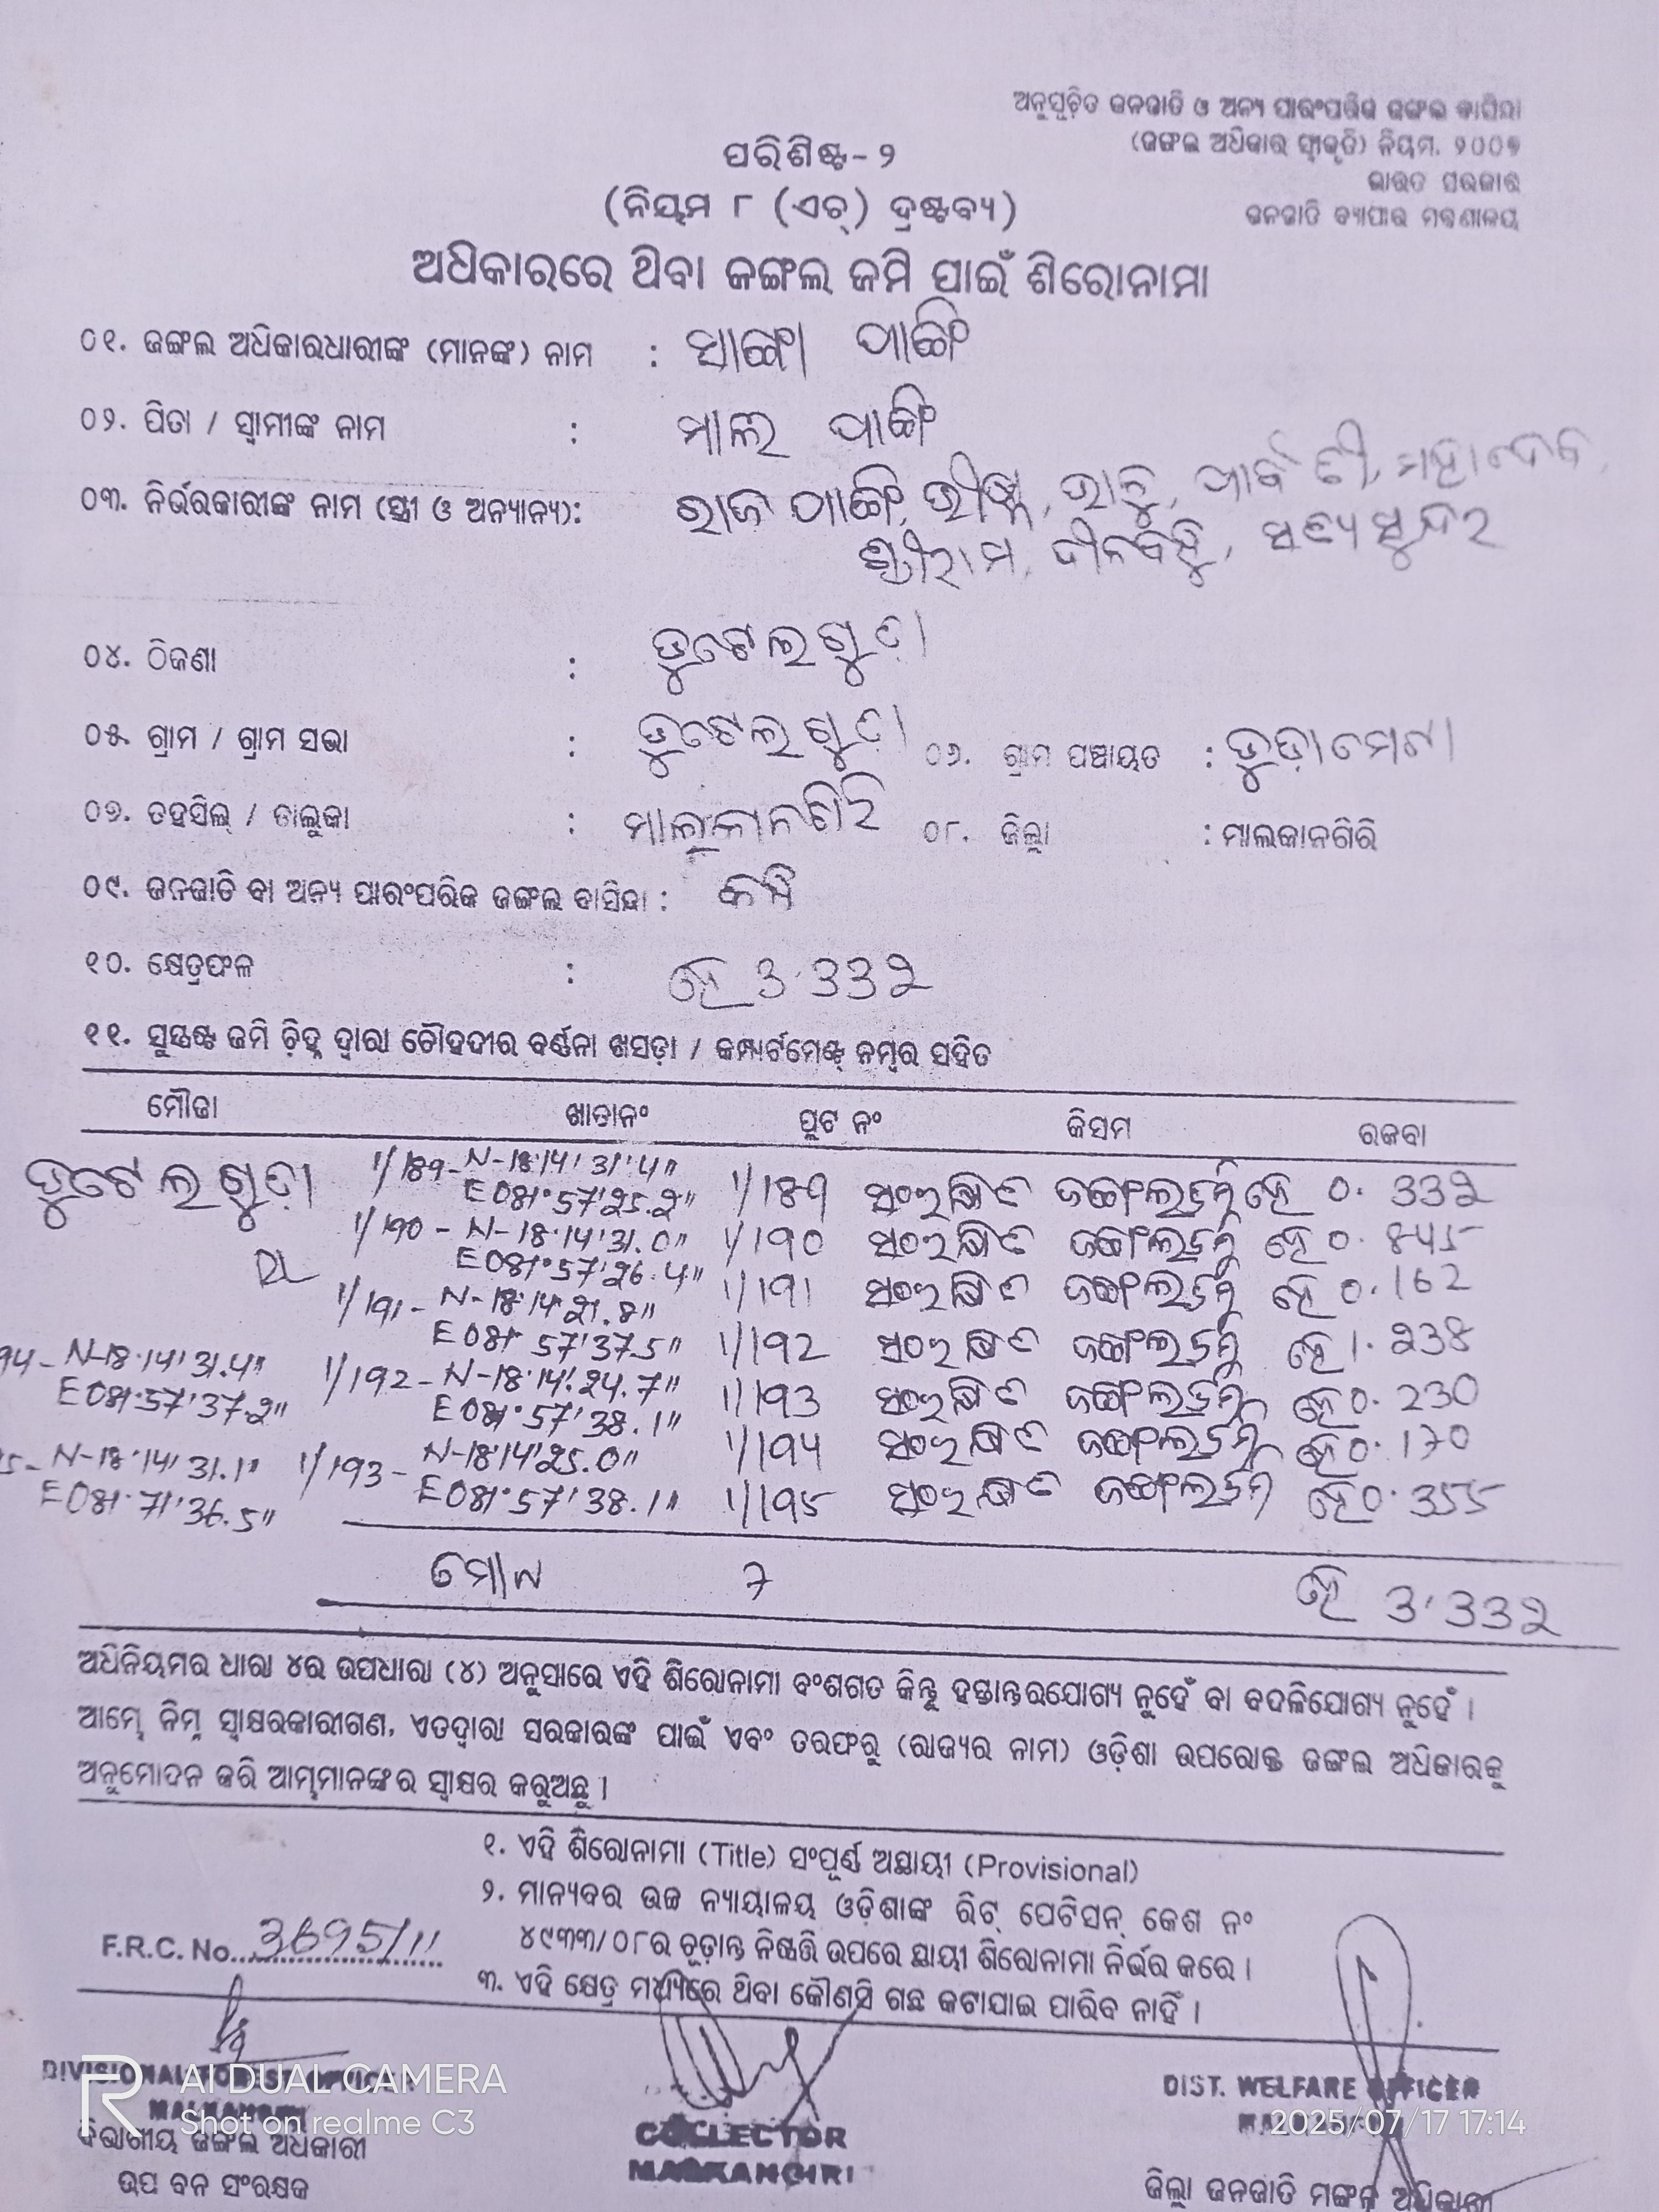 ଅନୁସୂଚିତ ଜନଜାତି ଓ ଅନ୍ୟ ପାରଂପରିକ ଜଙ୍ଗଲ ବାସିନ୍ଦା
(ଜଙ୍ଗଲ ଅଧିକାର ସ୍ୱୀକୃତି) ନିୟମ, ୨୦୦୭
ଭାରତ ସରକାର
ଜନଜାତି ବ୍ୟାପାର ମନ୍ତ୍ରଣାଳୟ
ପରିଶିଷ୍ଟ-୨
(ନିୟମ ୮ (ଏଚ୍) ଦ୍ରଷ୍ଟବ୍ୟ)
ଅଧିକାରରେ ଥିବା ଜଙ୍ଗଲ ଜମି ପାଇଁ ଶିରୋନାମା
୦୧. ଜଙ୍ଗଲ ଅଧିକାରଧାରୀଙ୍କ (ମାନଙ୍କ) ନାମ :
୦୨. ପିତା / ସ୍ୱାମୀଙ୍କ ନାମ :
୦୩. ନିର୍ଭରକାରୀଙ୍କ ନାମ (ସ୍ତ୍ରୀ ଓ ଅନ୍ୟାନ୍ୟ): ପାର୍ବତୀ, ମହାଦେବ,
ଶ୍ରୀରାମ, ଦୀନବନ୍ଧୁ, ସତ୍ୟସୁନ୍ଦର
୦୪. ଠିକଣା : ଡୁଟେଲଗୁଡ଼ା
୦୫. ଗ୍ରାମ / ଗ୍ରାମ ସଭା : ଡୁଟେଲଗୁଡ଼ା ୦୬. ଗ୍ରାମ ପଞ୍ଚାୟତ : ଡୁଡ଼ାମେଟା
୦୭. ତହସିଲ୍ / ତାଲୁକା : ମାଲକାନଗିରି ୦୮. ଜିଲ୍ଲା : ମାଲକାନଗିରି
୦୯. ଜନଜାତି ବା ଅନ୍ୟ ପାରଂପରିକ ଜଙ୍ଗଲ ବାସିନ୍ଦା :
୧୦. କ୍ଷେତ୍ରଫଳ : ହେ 3.332
୧୧. ସୁସ୍ପଷ୍ଟ ଜମି ଚିହ୍ନ ଦ୍ୱାରା ଚୌହଦୀର ବର୍ଣ୍ଣନା ଖସଡ଼ା / କମ୍ପାର୍ଟମେଣ୍ଟ୍ ନମ୍ବର ସହିତ
ମୌଜା ଖାତାନଂ ପ୍ଲଟ ନଂ କିସମ ରକବା
ଡୁଟେଲଗୁଡ଼ା 1/189- N-18°14'31.4" 1/189 ସଂରକ୍ଷିତ ଜଙ୍ଗଲ ହେ 0.332
E081°57'25.2"
1/190- N-18°14'31.0" 1/190 ସଂରକ୍ଷିତ ଜଙ୍ଗଲ ହେ 0.845
E081°57'26.4"
1/191- N-18°14'21.8" 1/191 ସଂରକ୍ଷିତ ଜଙ୍ଗଲ ହେ 0.162
E081°57'37.5" 1/192 ସଂରକ୍ଷିତ ଜଙ୍ଗଲ ହେ 1.238
94- N-18°14'31.4" 1/192- N-18°14'24.7"
E081°57'37.2" E081°57'38.1" 1/193 ସଂରକ୍ଷିତ ଜଙ୍ଗଲ ହେ 0.230
1/194 ସଂରକ୍ଷିତ ଜଙ୍ଗଲ ହେ 0.170
5- N-18°14'31.1" 1/193- N-18°14'25.0"
E081°71'36.5" E081°57'38.1" 1/195 ସଂରକ୍ଷିତ ଜଙ୍ଗଲ ହେ 0.355
ମୋଟ 7 ହେ 3.332
ଅଧିନିୟମର ଧାରା ୪ର ଉପଧାରା (୪) ଅନୁସାରେ ଏହି ଶିରୋନାମା ବଂଶଗତ କିନ୍ତୁ ହସ୍ତାନ୍ତରଯୋଗ୍ୟ ନୁହେଁ ବା ବଦଳିଯୋଗ୍ୟ ନୁହେଁ ।
ଆମ୍ଭେ ନିମ୍ନ ସ୍ୱାକ୍ଷରକାରୀଗଣ, ଏତଦ୍ୱାରା ସରକାରଙ୍କ ପାଇଁ ଏବଂ ତରଫରୁ (ରାଜ୍ୟର ନାମ) ଓଡ଼ିଶା ଉପରୋକ୍ତ ଜଙ୍ଗଲ ଅଧିକାରକୁ
ଅନୁମୋଦନ କରି ଆମ୍ଭମାନଙ୍କର ସ୍ୱାକ୍ଷର କରୁଅଛୁ ।
୧. ଏହି ଶିରୋନାମା (Title) ସଂପୂର୍ଣ୍ଣ ଅସ୍ଥାୟୀ (Provisional)
୨. ମାନ୍ୟବର ଉଚ୍ଚ ନ୍ୟାୟାଳୟ ଓଡ଼ିଶାଙ୍କ ରିଟ୍ ପେଟିସନ୍ କେଶ ନଂ
୪୯୩୩/୦୮ର ଚୂଡ଼ାନ୍ତ ନିଷ୍ପତ୍ତି ଉପରେ ସ୍ଥାୟୀ ଶିରୋନାମା ନିର୍ଭର କରେ ।
F.R.C. No....3695/11
୩. ଏହି କ୍ଷେତ୍ର ମଧ୍ୟରେ ଥିବା କୌଣସି ଗଛ କଟାଯାଇ ପାରିବ ନାହିଁ ।
DIVISIONAL FOREST OFFICER
MALKANGIRI
ବିଭାଗୀୟ ଜଙ୍ଗଲ ଅଧିକାରୀ
ଉପ ବନ ସଂରକ୍ଷକ
COLLECTOR
MALKANGIRI
DIST. WELFARE OFFICER
ଜିଲ୍ଲା ଜନଜାତି ମଙ୍ଗଳ ଅଧିକାରୀ
AI DUAL CAMERA
Shot on realme C3
2025/07/17 17:14